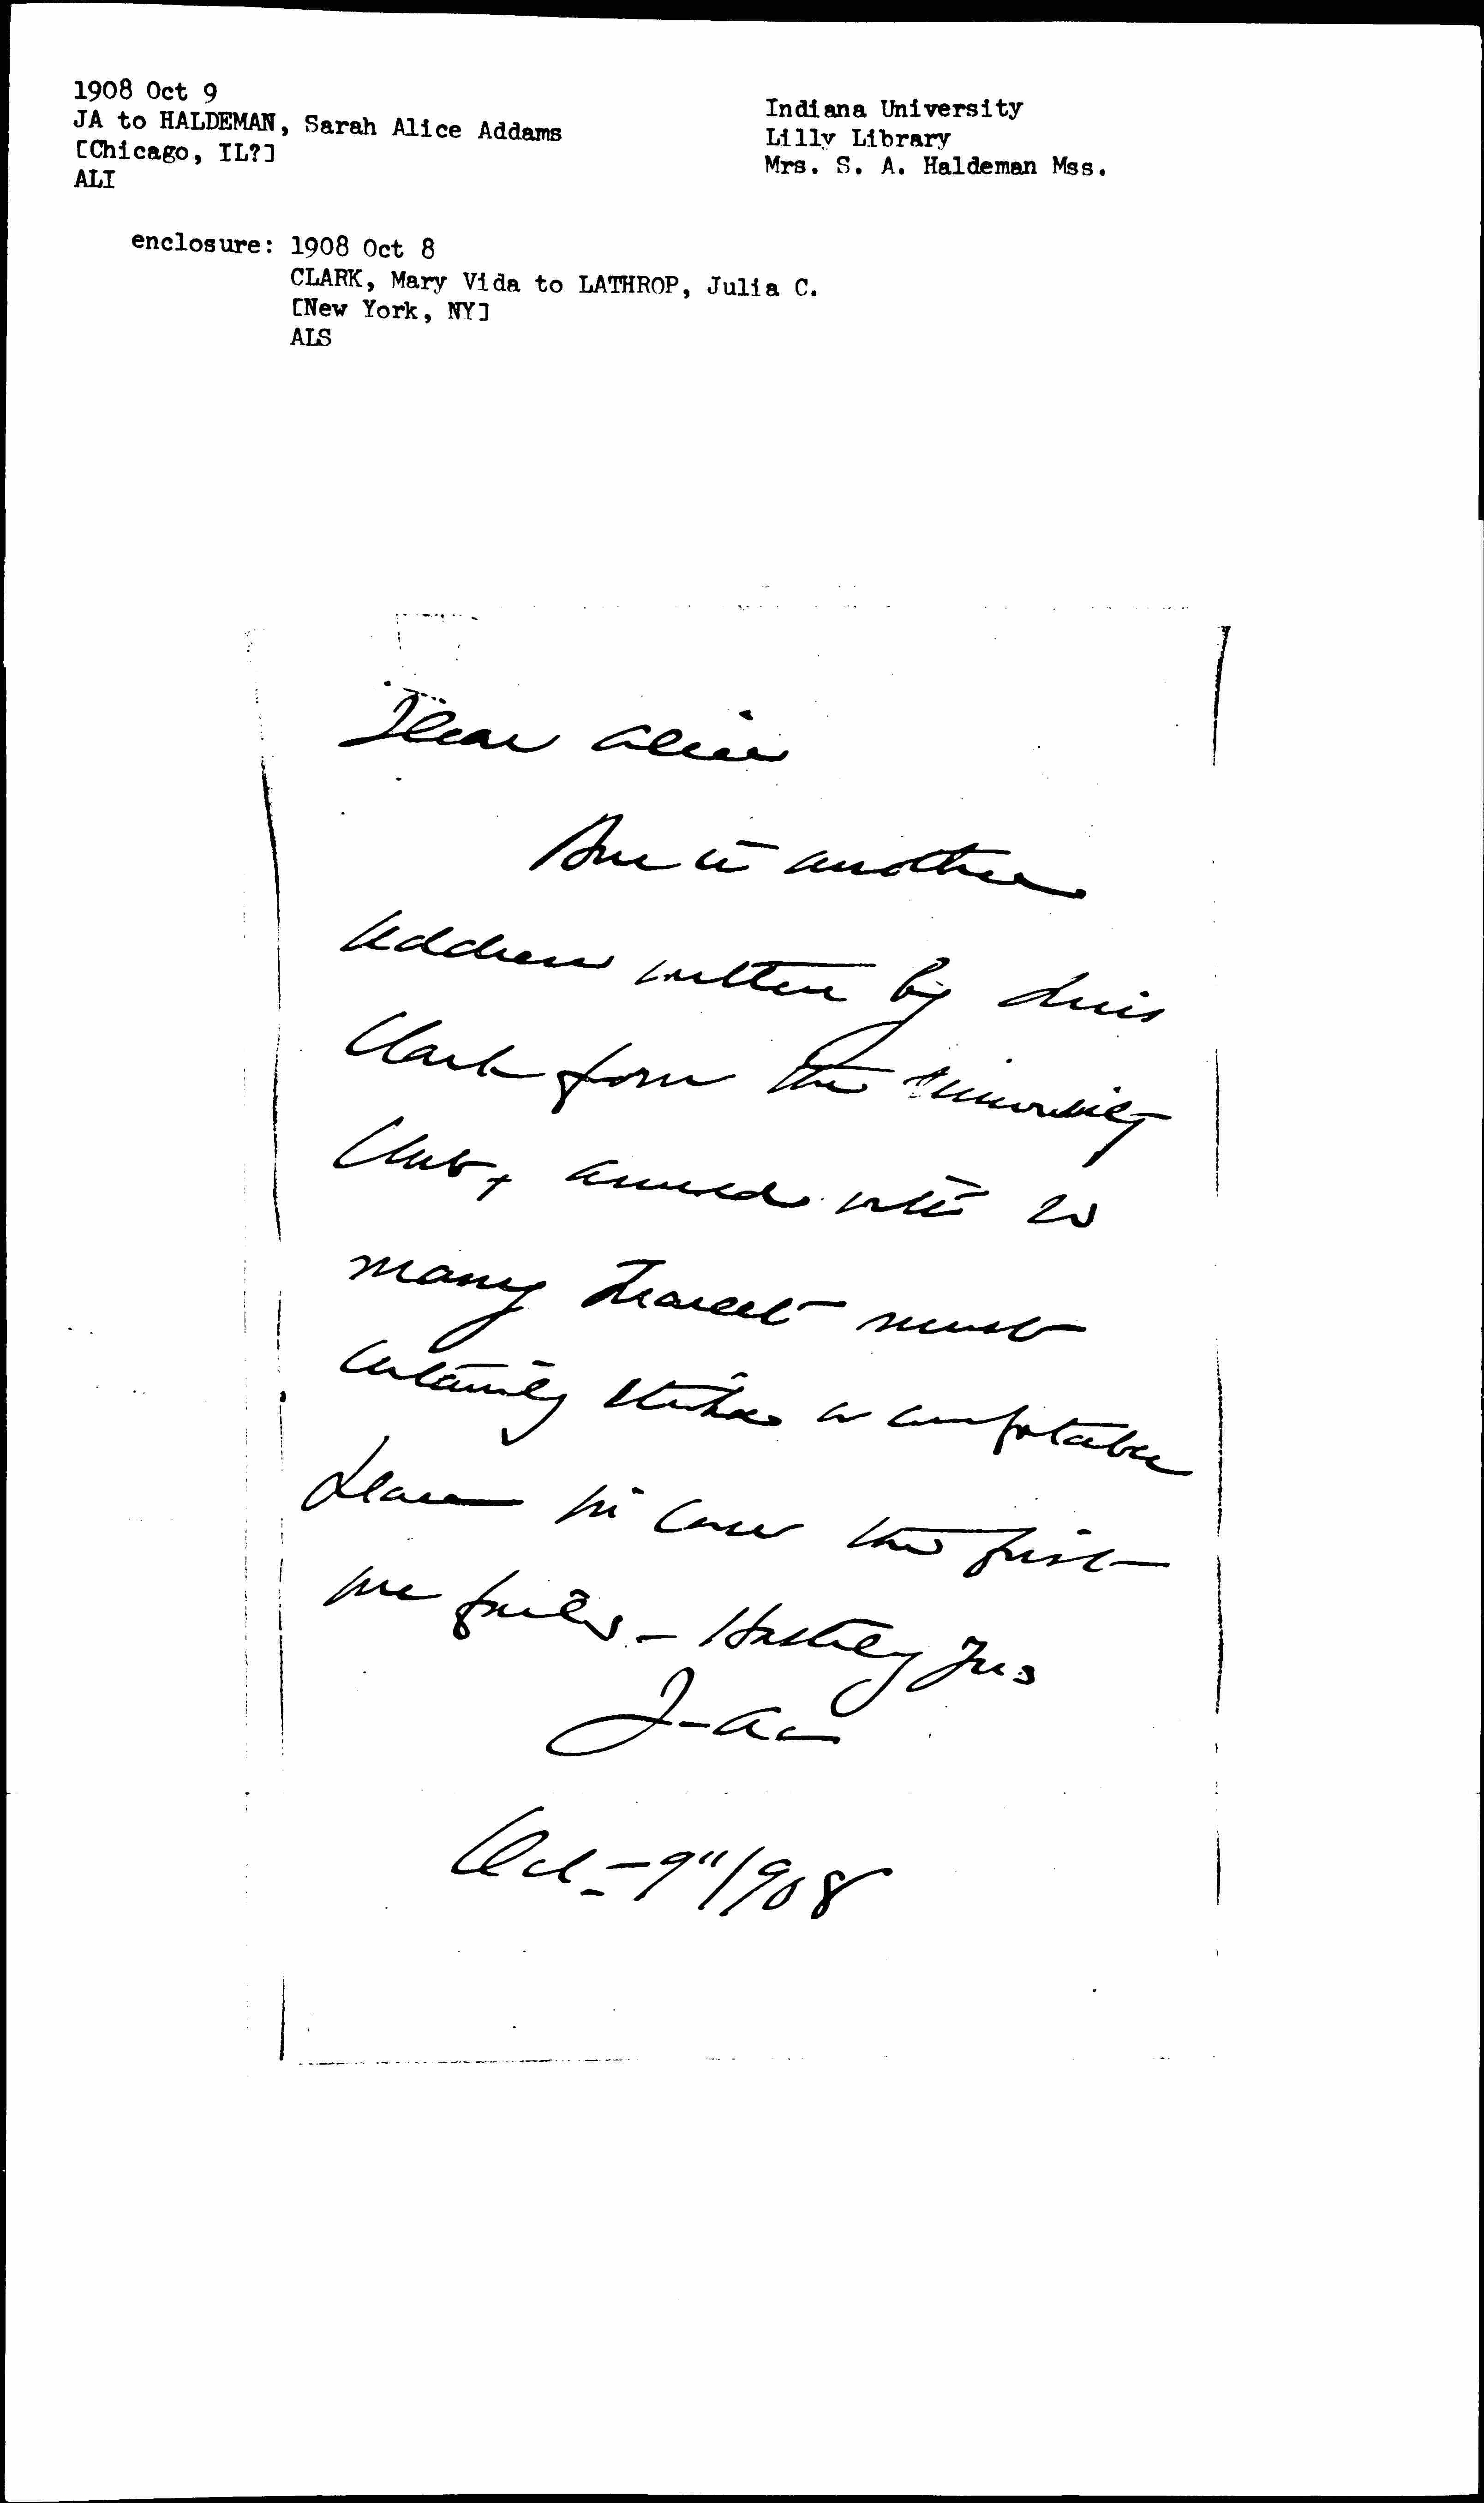 1908 Oct 9
JA to HALDEMAN, Sarah Alice Addams
[Chicago, IL?]
ALI
Indiana University
Lilly Library
Mrs. S. A. Haldeman Mss.
enclosure: 1908 Oct 8
CLARK, Mary Vida to LATHROP, Julia C.
[New York, NY]
ALS
Dear Alice
Here is another
address written by Miss
Clark from the University
Club, armed with so
many you must
certainly strike a comfortable
place in case the first
one fails – Hastily Yrs
J – A –
Oct – 9" 1908